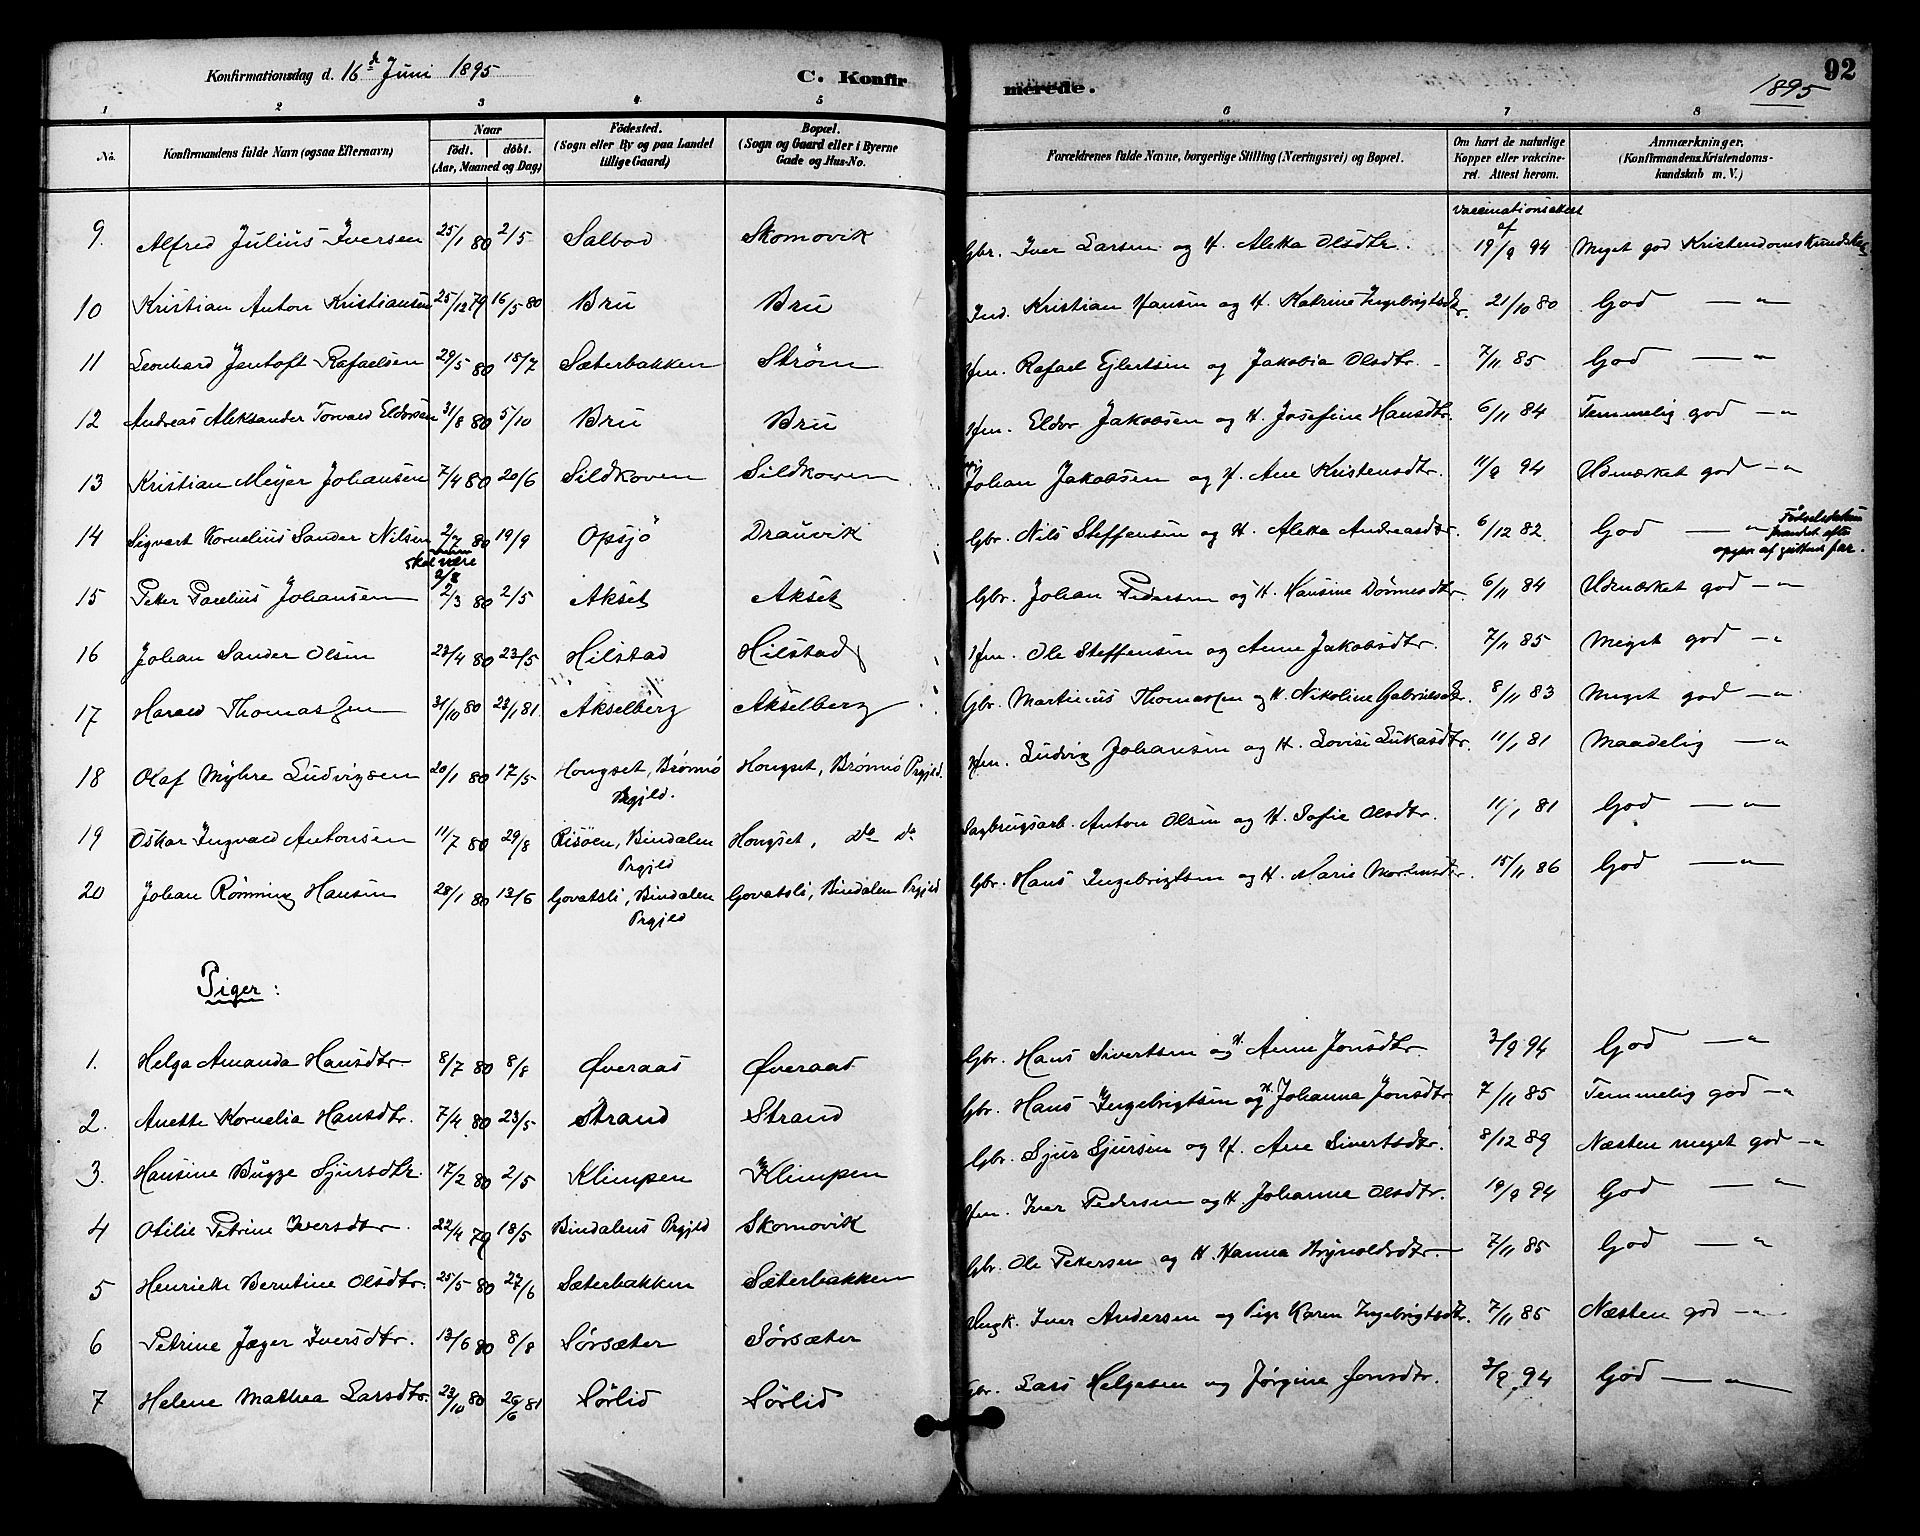 Konfirmationsdag d. 16de Juni 1895
C. Konfir
merede.
92
1895
1 2 3 4 5 6 7 8
No.
Konfirmandens fulde Navn (ogsaa Efternavn)
Naar
født. døbt.
(Aar, Maaned og Dag)
Födested.
(Sogn eller By og paa Landet
tillige Gaard)
Bopæl.
(Sogn og Gaard eller i Byerne
Gade og Hus-No.
Forældrenes fulde Navne, borgerlige Stilling (Næringsvei) og Bopæl.
Om havt de naturlige
Kopper eller vakcine-
ret. Attest herom.
Anmærkninger.
(Konfirmandens Kristendoms-
kundskab m. V.)
Vaccinationsattest
af
9. Alfred Julius Iversen 25/1 80 2/5 Salbod Skomovik Gbr. Iver Larsen og H. Aletta Olsdtr. 19/9 94 Meget god Kristendomskundskab
10 Kristian Anton Kristiansen 25/12 79 16/5 80 Bru Bru Ind. Kristian Hansen og H. Katrine Ingebrigtsdtr. 21/10 80 God — "
11 Leonhard Jentoft Rafaelsen 29/5 80 18/7 Sæterbakken Strøm Hm. Rafael Ejlertsen og Jakobia Olsdtr. 7/11 85 God — "
12 Andreas Aleksander Torvald Eldorsen 31/8 80 5/10 Bru Bru Hm. Eldor Jakobsen og H. Josefine Hansdtr. 6/11 84 Temmelig god — "
13 Kristian Meyer Johansen 7/4 80 20/6 Sildkoven Sildkoven Johan Jakobsen og H. Ane Kristensdtr. 11/9 94 Udmærket god — "
14 Sigvart Kornelius Sander Nilsen 2/7 80 19/9 Opsjö Drauvik Gbr. Nils Steffensen og H. Aletta Andreasdtr. 6/12 82 God — "
skal være
2/8
opgav af
15 Petter Parelius Johansen 2/3 80 2/5 Akset Akset Gbr. Johan Pedersen og H. Hansine Dønnesdtr. 6/11 84 Udmærket god — "
16 Johan Sander Olsen 28/4 80 23/5 Hilstad Hilstad Hm. Ole Steffensen og Anne Jakobsdtr. 7/11 85 Meget god — "
17 Harald Thomassen 31/10 80 23/1 81 Akselberg Akselberg Gbr. Martinus Thomassen og H. Nikoline Gabrielsdtr. 8/11 83 Meget god — "
18 Olaf Myhre Ludvigsen 20/1 80 17/5 Hongset, Brønnø Hongset, Brønnø Prgjeld. Hm. Ludvig Johansen og H. Lovise Lukasdtr. 11/1 81 Maadelig — "
Prgjeld.
19 Oskar Ingvald Antonsen 11/7 80 29/8 Risöen, Bindalen Hongset, Do Do Sagbrugsarb. Anton Olsen og H. Sofie Olsdtr. 11/1 81 God — "
Prgjeld
20 Johan Rønning Hansen 28/1 80 13/6 Govatsli, Bindalen Govatsli, Bindalen Prgjeld Gbr. Hans Ingebrigtsen og H. Maris Mortensdtr. 15/11 86 God — "
Prgjeld
Piger:
1. Helga Amanda Hansdtr. 8/7 80 8/8 Øveraas Øveraas Gbr. Hans Sivertsen og H. Anne Jonsdtr. 3/9 94 God — "
2. Anette Kornelia Hansdtr. 7/4 80 23/5 Strand Strand Gbr. Hans Ingebrigtsen og H. Johanna Jonsdtr 7/11 85 Temmelig god — "
3. Hansine Bugge Sjursdtr. 17/2 80 2/5 Klimpen Klimpen Gbr. Sjur Sjursen og H. Ane Sivertsdtr. 8/12 89 Næsten meget god — "
4 Otilie Petrine Iversdtr. 22/4 79 18/5 Bindalens Prgjeld Skomovik Hm. Iver Pedersen og H. Johanne Olsdtr. 19/9 94 God — "
5 Henriette Berntine Olsdtr. 25/5 80 27/6 Sæterbakken Sæterbakken Gbr. Ole Pettersen og H. Hanna Brynoldsdtr 7/11 85 God — "
6 Petrine Jæger Iversdtr. 13/6 80 8/8 Sörsæter Sörsæter Ungk. Iver Andersen og Pige Karen Ingebrigtsdtr. 7/11 85 Næsten god — "
7 Helene Mathea Larsdtr. 23/10 80 26/6 81 Sörlid Sörlid Gbr. Lars Helgesen og Jørgine Jonsdtr. 3/9 94 God — "